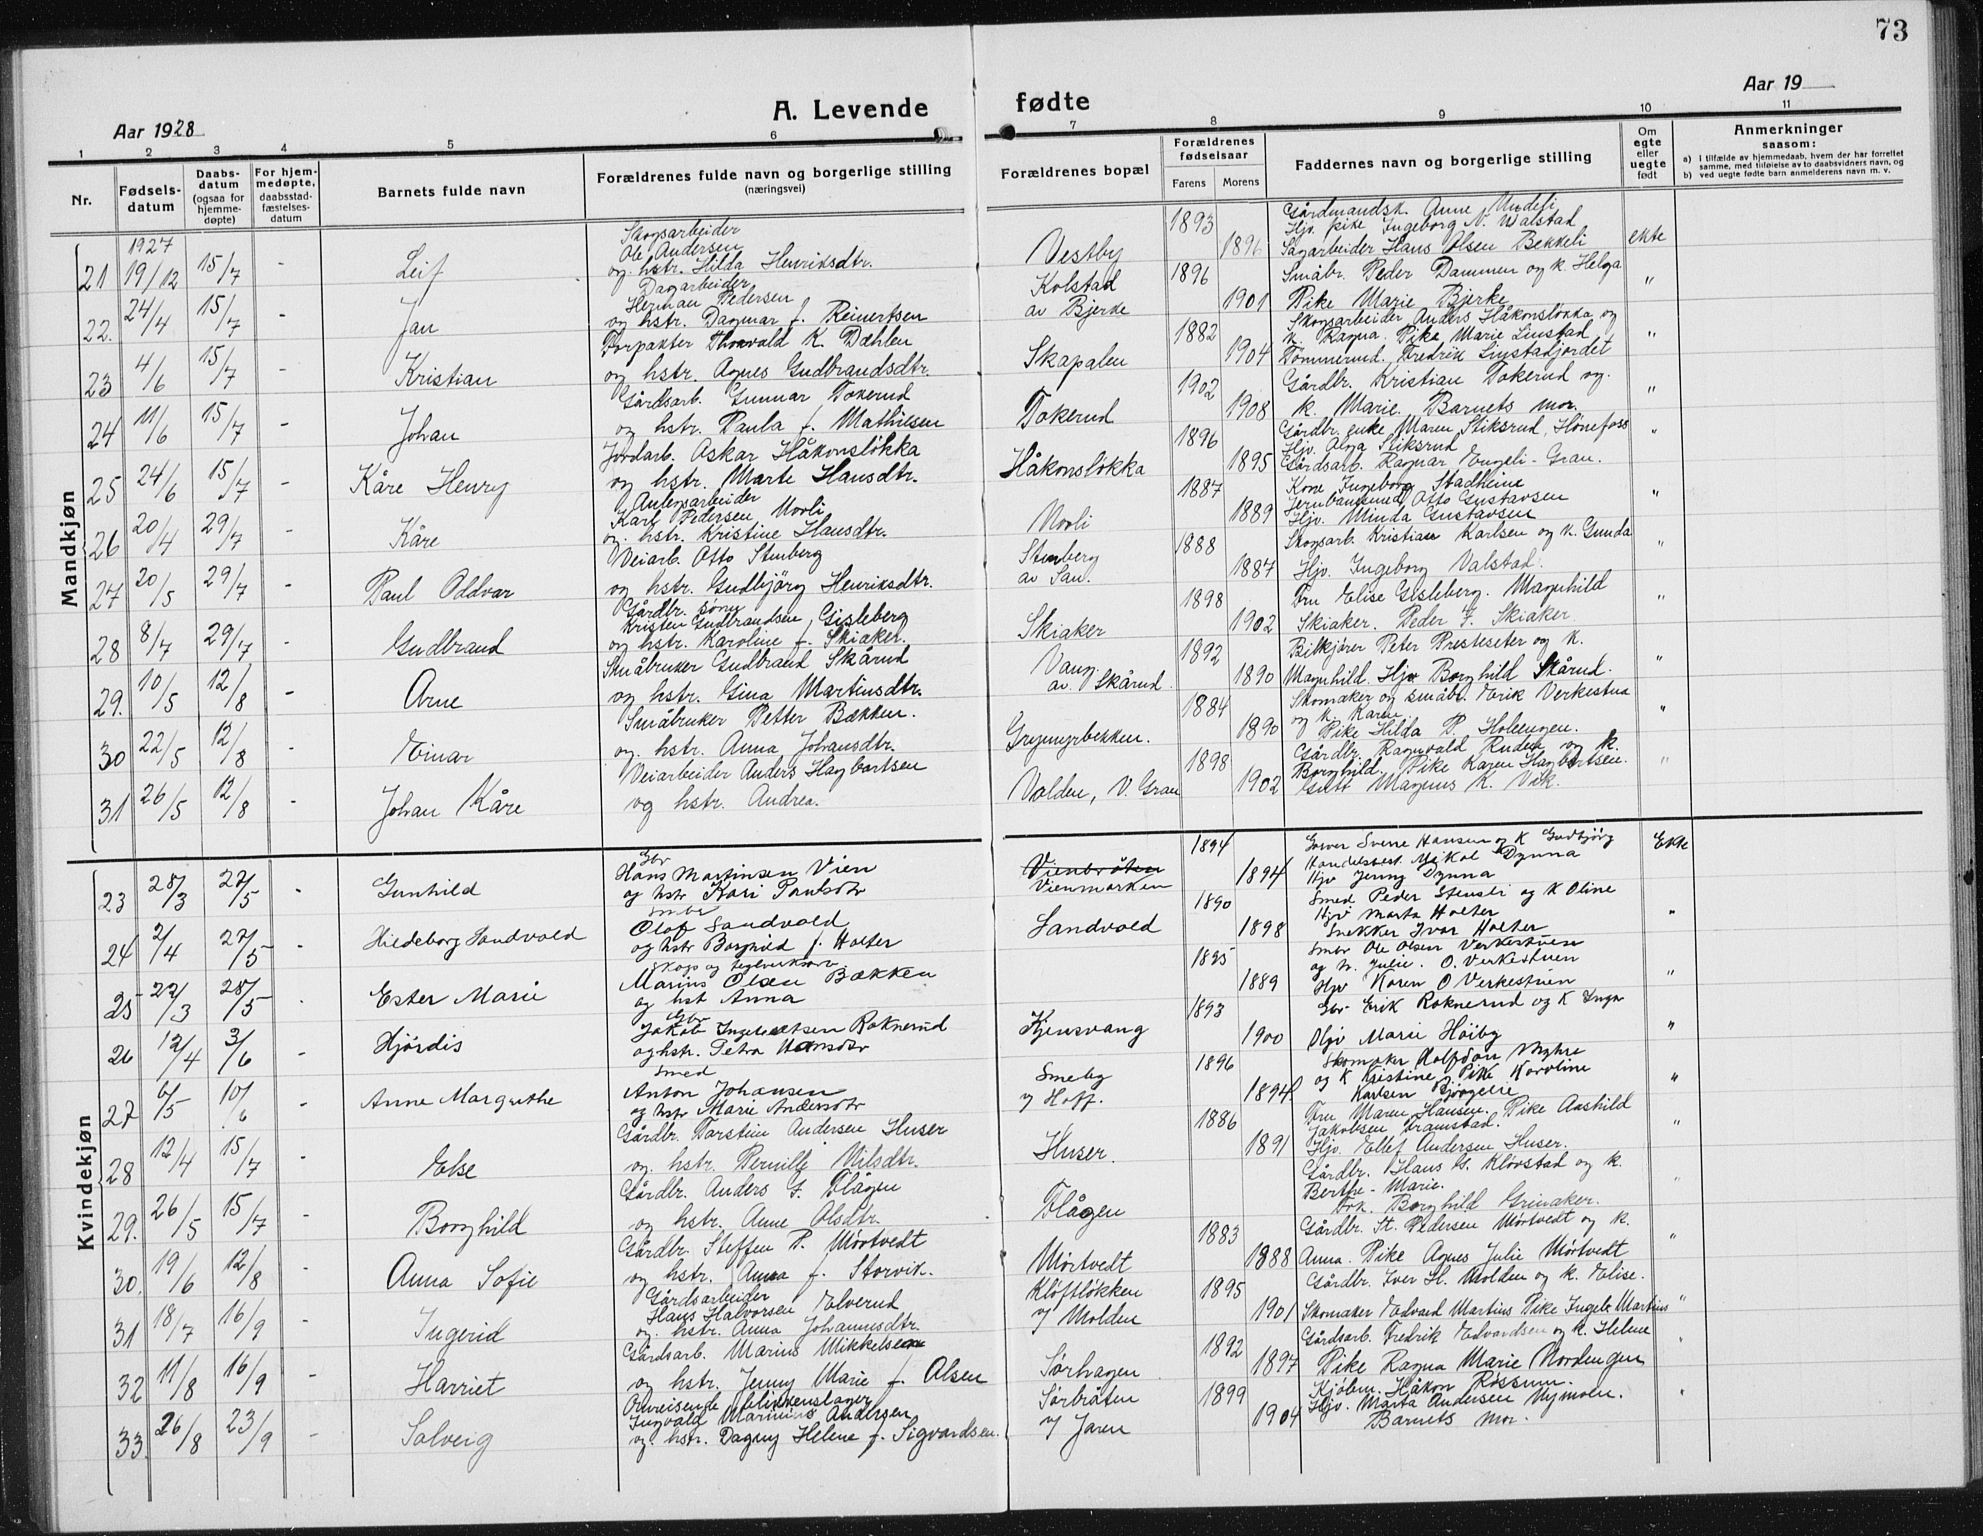 73
Aar 1928
A. Levende
fødte
Aar 19
1 2 3 4 5 6 7 8 9 10 11
Nr.
Fødsels-
datum
Daabs-
datum
(ogsaa for
hjemme-
døpte)
For hjem-
medøpte,
daabsstad-
fæstelses-
datum
Barnets fulde navn
Forældrenes fulde navn og borgerlige stilling
(næringsvei)
Forældrenes bopæl
Forældrenes
fødselsaar
Farens Morens
Faddernes navn og borgerlige stilling
Om
egte
eller
uegte
født
Anmerkninger
saasom:
a) I tilfælde av hjemmedaab, hvem der har forrettet
samme, med tilføielse av to daabsvidners navn, og
b) ved uegte født barn anmelderens navn m. v.
Mandkjøn
1927
21 19/12 15/7 - Leif
Skogsarbeider
Ole Andersen
og hstr. Hilda Henriksdtr.
Vestby 1893 1896
Gårdmandsk. Anne Undeli
Hjv. pike Ingeborg N. Walstad
Sagarbeider Hans Olsen Bekkeli
ekte
22. 24/4 15/7 - Jan
Dagarbeider
Herman Pedersen
og hstr. Dagmar f. Reinertsen
Kolstad
av Bjerke
1896 1901
Småbr. Peder Dammen og k. Helga
Pike Marie Bjerke
"
23 4/6 15/7 - Kristian
Forpakter Thorvald K. Dæhlen
og hstr. Agnes Gudbrandsdtr.
Skapalen 1882 1904
Skogsarbeider Anders Håkonsløkka og
k. Ragna. Pike Marie Linstad
Tømmermd. Fredrik Linstadjordet
"
24 11/6 15/7 - Johan
Gårdsarb. Gunnar Tokerud
og hstr. Paula f. Mathiesen
Tokerud 1902 1908
Gårdbr. Kristian Tokerud og
k. Marie. Barnets mor.
"
25 24/6 15/7 - Kåre Henry
Jordarb. Oskar Håkonsløkka
og hstr. Marte Hansdtr.
Håkonsløkka 1896 1895
Gårdbr. enke Maren Stiksrud, Hønefoss
Hjv. Olga Stiksrud
Gårdsarb. Ragnar Engeli - Gran.
"
26 20/4 29/7 - Kåre
Anlegsarbeider
Karl Pedersen Morli
og hstr. Kristine Hansdtr.
Morli 1887 1889
Kone Ingeborg Stadheim
Jernbanemed. Otto Gustavsen
Hjv. Minda Gustavsen
"
27 20/5 29/7 - Paul Oddvar
Veiarb. Otto Stenberg
og hstr. Gudbjörg Henriksdtr.
Stenberg
av San.
1888 1887
Skogsarb. Kristian Karlsen og k. Gunda
Hjv. Ingeborg Valstad.
"
28 8/7 29/7 - Gudbrand
Gårdbr. sønn
Kristen Gudbrandsen Gisleberg
og hstr. Karoline f. Skiaker.
Skiaker 1898 1902
Fru Elise Gisleberg. Magnhild
Skiaker. Peder G. Skiaker
"
29. 10/5 12/8 - Arne
Småbruker Gudbrand Skårud
og hstr. Gina Martinsdtr.
Vang.
av Skårud
1892 1890
Bilkjører Peter Presteseter og k.
Magnhild. Hjv Borghild Skårud.
"
30 22/5 12/8 - Einar
Småbruker Petter Bækken.
og hstr. Anna Johansdtr.
Grymyrbekken. 1884 1890
Skomaker og småbr. Erik Verkestua
og k. Karen
Pike Hilda P. Holmengen.
"
31 26/5 12/8 - Johan Kåre
Veiarbeider Anders Hagbartsen
og hstr. Andrea.
Volden, V. Gran 1898 1902
Gårdbr. Ragnvald Ruden og k.
Borghild. Pike Karen Hagbartsen.
Gutt Magnus K. Vik.
"
Kvindekjøn
23 28/3 27/5 - Gunhild
Gbr
Hans Martinsen Vien
og hstr Kari Paulsdtr
Vienbråten
Vienmarken
1894 1894
Garver Sverre Hansen og K Gudbjörg
Handelsbest. Mikal Dynna
Hjv Jenny Dynna
Ekte
24 2/4 27/5 - Hildeborg Sandvold
Smbr
Olof Sandvold
og hstr Borghild f. Holter
Sandvold 1890 1898
Smed Peder Stensli og K Oline
Hjv Marta Holter
Snekker Ivar Holter
"
25 22/3 28/5 - Ester Marie
Skogs og teglverksarb
Marius Olsen Bækken
og hst Anna
1895 1889
Smbr Ole Olsen Verkestuen
og k. Julie. O. Verkestuen
Hjv Karen O Verkestuen
"
26 12/4 3/6 - Hjördis
Gbr
Jakob Ingebretsen Roknerud
og hstr. Petra Hansdtr
Kjensvang 1893 1900
Gbr Erik Roknerud og K Inga
Hjv Marie Höiby
"
27 6/5 10/6 - Anne Margrethe
Smed
Anton Johansen
og hstr Marie Andersdtr
Smeby
v/ Hoff.
1896 1894
Skomaker Halfdan Myhre
og K Kristine, Pike Karoline
Karlsen Bjørgelie
"
28 12/4 15/7 - Else
Gårdbr. Torstein Andersen Huser
og hstr. Pernille Nilsdtr.
Huser. 1886 1891
Fru Maren Hansen. Pike Aashild
Jakobsen Framstad.
Hjv. Ellef Andersen Huser.
"
29. 26/5 15/7 - Borghild
Gårdbr. Anders G. Flågen
og hstr. Anne Olsdtr.
Flågen
Gårdbr. Hans G. Kløvstad og k.
Berthe-Marie.
Frk. Borghild Grinaker.
"
30. 19/6 12/8 - Anna Sofie
Gårdbr. Steffen P. Mörtvedt
og hstr. Anna f. Storvik.
Mörtvedt 1883 1888
Gårdbr. St. Pedersen Mörtvedt og k.
Anna. Pike Agnes Julie Mörtvedt
"
31 18/7 16/9 - Ingerid
Gårdsarbeider
Hans Halvorsen Elverud
og hstr. Anna Johannesdtr.
Kløftløkken
v/ Molden
1895 1901
Gårdbr. Iver H. Molden og k. Elise.
Skomaker Edvard Martins Pike Ingeb. Martins
"
32 11/8 16/9 - Harriet
Gårdsarb. Marius Mikkelsen
og hstr. Jenny Marie f. Olsen
Sørhagen 1892 1897
Gårdsarb. Fredrik Edvardsen og k. Helene
Pike Ragna Marie Nordengen
"
33. 26/8 23/9 - Solveig
Omreisende blikkenslager
Ingvald Marinius Andersen
og hstr. Dagny Helene f. Sigvardsen.
Sørbråten
v/ Jaren
1899 1904
Kjöbm. Håkon Rossum.
Hjv. Marta Andersen Nymoen.
Barnets mor.
"